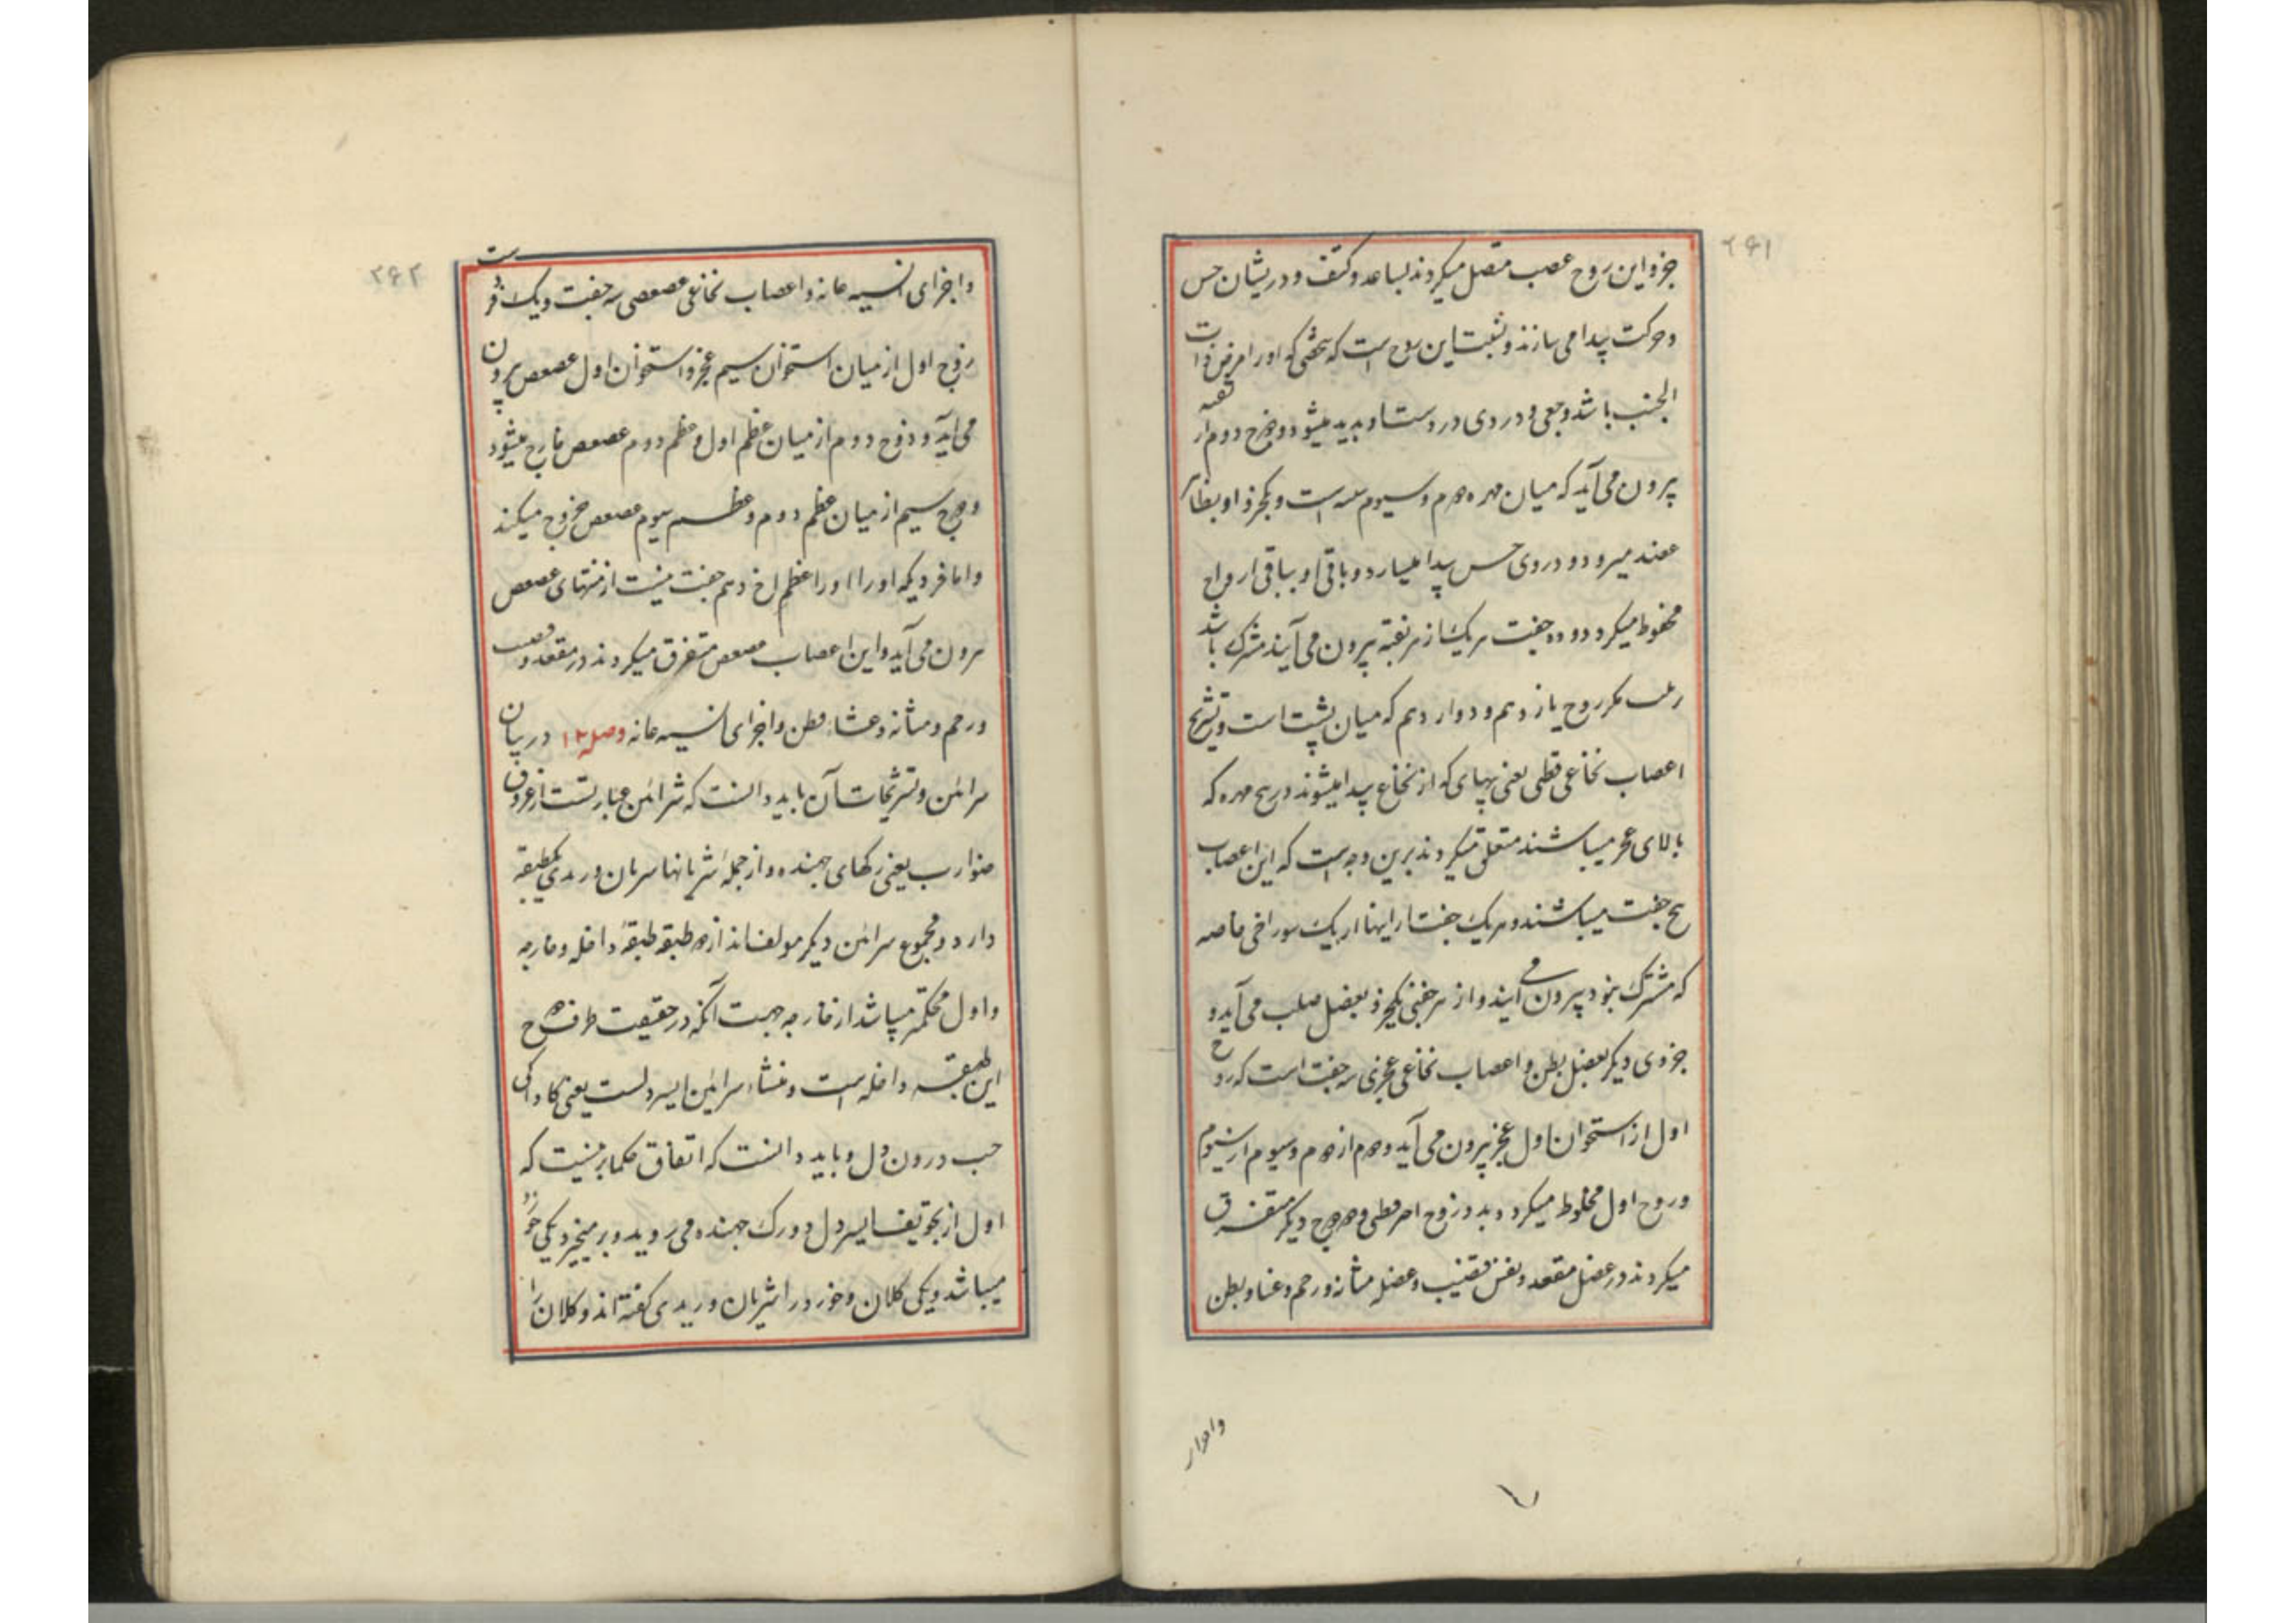 ۲۶۱
جزو این زوج عصب متصل میکردند بساعد و کتف و در یشان حس
و حرکت پیدا می سازند و نسبت این زوج است که شخصی که او را مرض ذات
الجنب باشد وجعی و دردی در دست او پدید میشود و زوج دوم از
بیرون می آید که میان مهره دوم و سیوم است و یکجزؤ او بظاهر
عضد میرود و در وی حس پیدا میسازد و باقی او بباقی ازواج
مخلوط میکردد و ده جفت هر یک از هر ثقبه بیرون می آیند مشترک باشد
مکر زوج یازدهم و دوازدهم که میان پشت است و تشریح
اعصاب نخاعی قطنی یعنی پیهای که از نخاع پیدا میشوند در پنج مهره که
بالای عجز میباشند متعلق میکردند برین وجه است که این اعصاب
پنج جفت میباشند و هر یک جفت را اینها از یک سوراخی خاصه
که مشترک بنود بیرون می آیند و از هر جفتی یکجزؤ بعضل صلب می آید و
جزوی دیکر بعضل بطن و اعصاب نخاعی عجزی سه جفت است که زوج
اول از استخوان اول عجز بیرون می آید و دوم از دوم و سیوم از سیوم
و زوج اول مخلوط میکردد بدو زوج اخر قطنی و دو زوج دیکر متفرق
میکردند در عضل مقعد و نفس قضیب و عضله مثانه و رحم و غشاء بطن
۲۶۲
و اجزای انسیه عانه و اعصاب نخاعی عصعصی سه جفت و یک فرد است
زوج اول از میان استخوان سیم عجز و استخوان اول عصعص بیرون
می آید و زوج دوم از میان عظم اول و عظم دوم عصعص خارج میشود
و زوج سیم از میان عظم دوم و عظم سیوم عصعص خروج میکند
و اما فردیکه او را جفت نیست از منتهای عصعص
بیرون می آید و این اعصاب عصعص متفرق میکردند در مقعد و قضیب
و رحم و مثانه و غشاء بطن و اجزای انسیه عانه وصله ۱۲ در بیان
شرائین و تشریحات آن باید دانست که شرائین عبارتست از عروق
ضوارب یعنی رکهای جهنده و از جمله شریانها شریان وریدی یکطبقه
دارد و مجموع شرائین دیکر مولفاند از دو طبقه طبقه داخله و خارجه
و اول محکمتر میباشد از خارجه جهت آنکه در حقیقت ظرف روح
این طبقه داخله است و منشاء شرائین ایسر دلست یعنی کاواکی
چپ درون دل و باید دانست که اتفاق حکما برینست که
اول از تجویف ایسر دل دو رک جهنده می روید و بر میخیزد یکی خورد
میباشد و یکی کلان و خورد را شریان وریدی کفته اند و کلان را